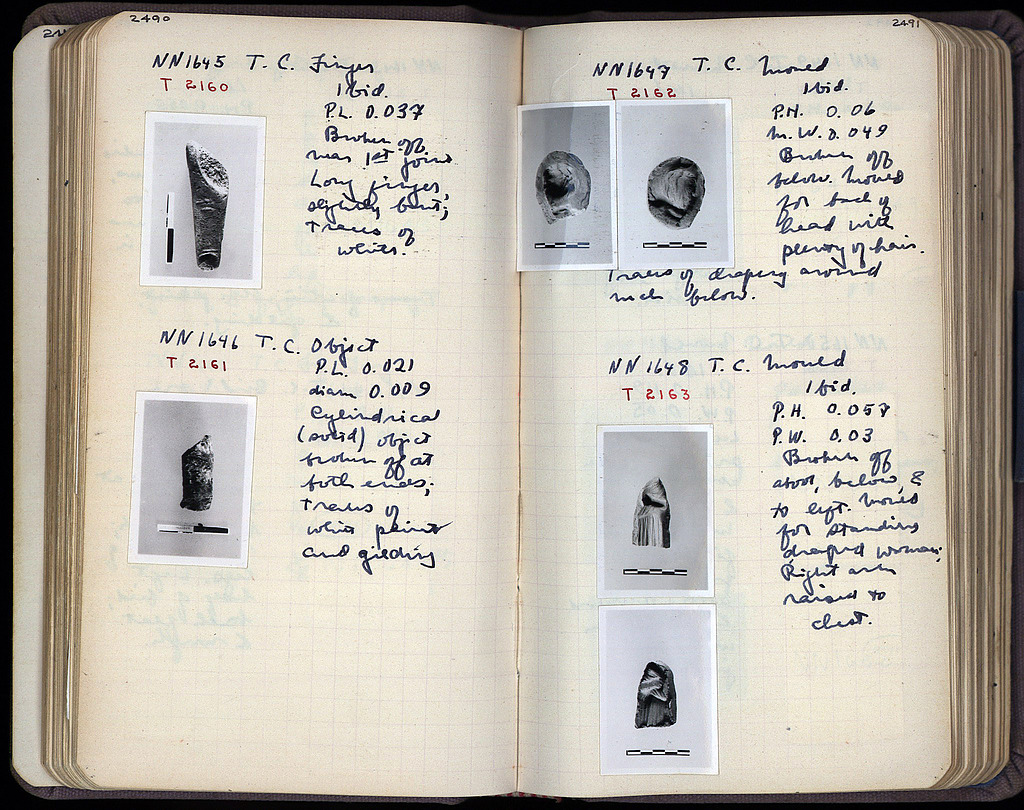 2490
NN1645 T.C. Finger
T 2160
Ibid.
P.L. 0.037
Broken off
near 1st joint
Long finger,
slightly bent;
traces of
white.
NN1646 T.C. Object
T 2161
P.L. 0.021
diam 0.009
Cylindrical
(solid) object
broken off at
both ends;
traces of
white paint
and gilding
2491
NN1647 T.C. Mould
T 2162
Ibid.
P.H. 0.06
M.W. 0.049
Broken off
below. Mould
for back of
head with
plenty of hair.
Traces of drapery around
neck below.
NN1648 T.C. Mould
T 2163
Ibid.
P.H. 0.057
P.W. 0.03
Broken off
above, below, &
to left. Mould
for standing
draped woman;
Right arm
raised to
chest.